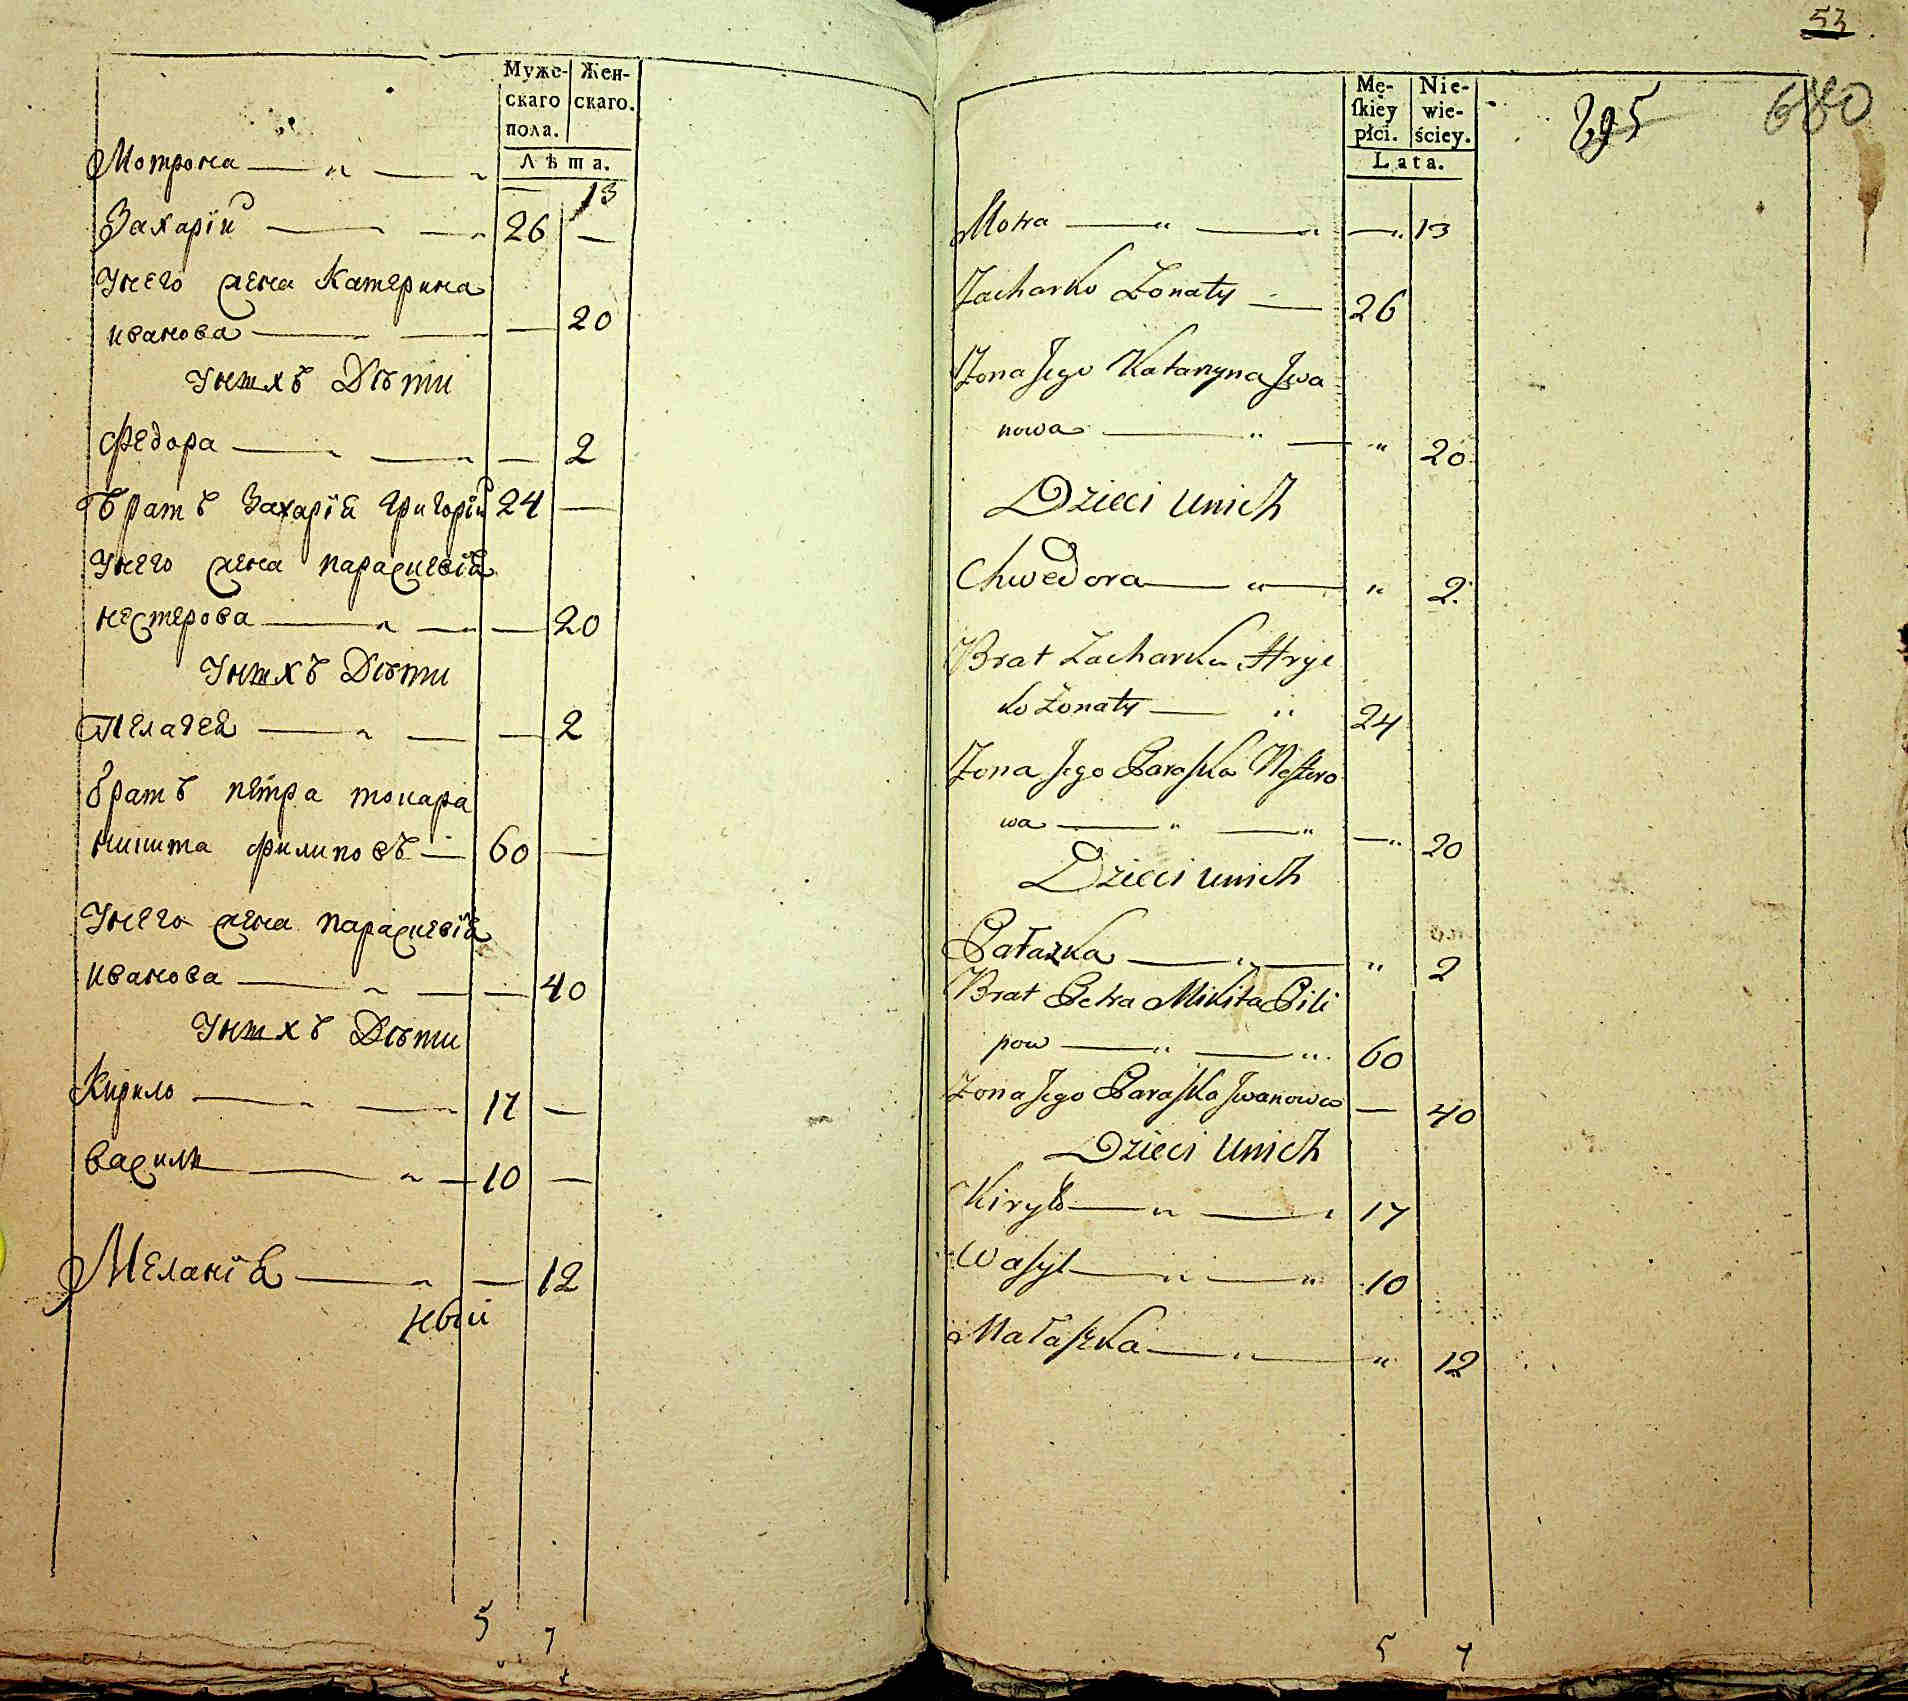 Муже-
скаго
пола.
Жен-
скаго.
Лѣта.
Мотрона — „ — „ — 13
Захарїй — — „ 26 —
Унего жена Катерина
иванова — — — 20
Унихъ Дѣти
Федора — — „ — 2
братъ Захарїя григорїй 24 —
Унего жена параскевїя
нестерова — „ — — 20
Унихъ Дѣти
Пелагея — „ — — 2
братъ петра токара
никита филиповъ — 60 —
Унего жена параскевїя
иванова — „ — — 40
Унихъ Дѣти
Кирило — „ — 17 —
василь — „ — 10 —
Меланїя — „ — 12
5 7
53
680
895
Mę-
ſkiey
płci.
Nie-
wie-
ściey.
Lata.
Motra — „ — „ — „ 13
Zacharko Żonaty — 26
Żona Jego Katarzyna Jwa
nowa — „ — „ 20
Dzieci unich
Chwedora — „ — „ 2
Brat Zacharka Hryc
ko Żonaty — „ 24
Żona Jego Paraſka Neſtero
wa — „ — „ — „ 20
Dzieci unich
Pałazka — „ — „ 2
Brat Petra Mikita Pili
pow — „ — „ 60
Żona Jego Paraſka Jwanowa — 40
Dzieci Unich
Kiryło — „ — „ 17
Waſyl — „ — „ 10
Małaſzka — „ — „ 12
5 7